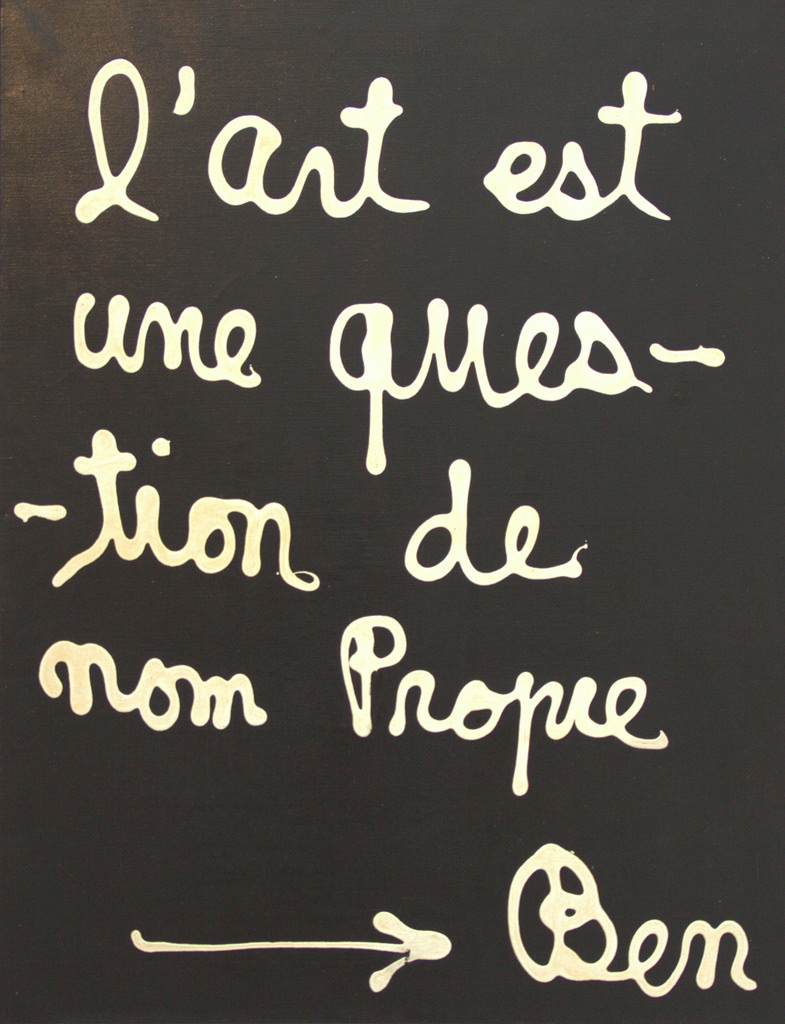 l'art est
une ques-
-tion de
nom Propre
→ Ben